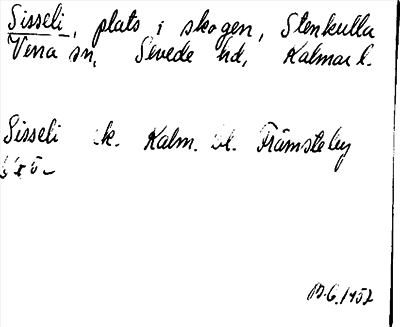 Sisseli, plats i skogen, Stenkulla
Vena sn, Sevede hd, Kalmar l.
Sisseli sk. Kalm. bl. Främsteby
B.G. 1952